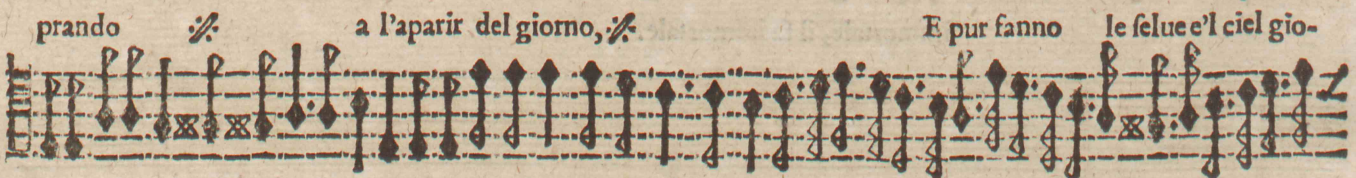 prando a l'aparir del giorno, E pur fanno le ſelue e'l ciel gio-